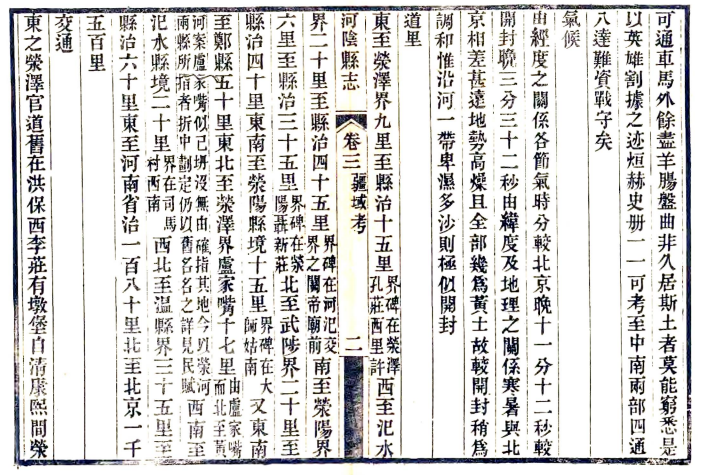 可通車馬外餘盡羊腸盤曲非久居斯土者莫能窮悉是
以英雄割據之迹烜赫史册一一可考至中南兩部四通
八達難資戰守矣
氣候
由經度之關係各節氣時分較北京晚十一分十二秒較
開封晚三分三十二秒由緯度及地理之關係寒暑與北
京相差甚遠地勢高燥且全部幾爲黃土故較開封稍爲
調和惟沿河一帶卑濕多沙則極似開封
道里
東至滎澤界九里至縣治十五里界碑在滎澤孔莊西里許西至汜水
河陰縣志 卷三 疆域考 二
界二十里至縣治四十五里界碑在河汜交界之關帝廟前南至滎陽界
六里至縣治三十五里界碑在滎陽聶新莊北至武陟界二十里至
縣治四十里東南至滎陽縣境十五里界碑在大師姑南又東南
至鄭縣五十里東北至滎澤界盧家嘴十七里由盧家嘴而北至黃
河案盧家嘴似已坍沒無由確指其地今以滎河兩縣所指者折中劃定仍以舊名名之詳見民賦西南至
汜水縣境二十里界在司馬村西南西北至温縣界三十五里至
縣治六十里東至河南省治一百八十里北至北京一千
五百里
交通
東之滎澤官道舊在洪保西李莊有墩堡自清康熙間滎